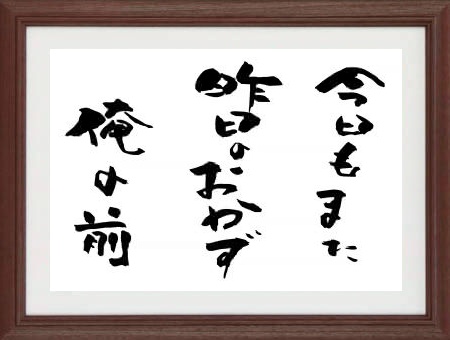 今日もまた
昨日のおかず
俺の前